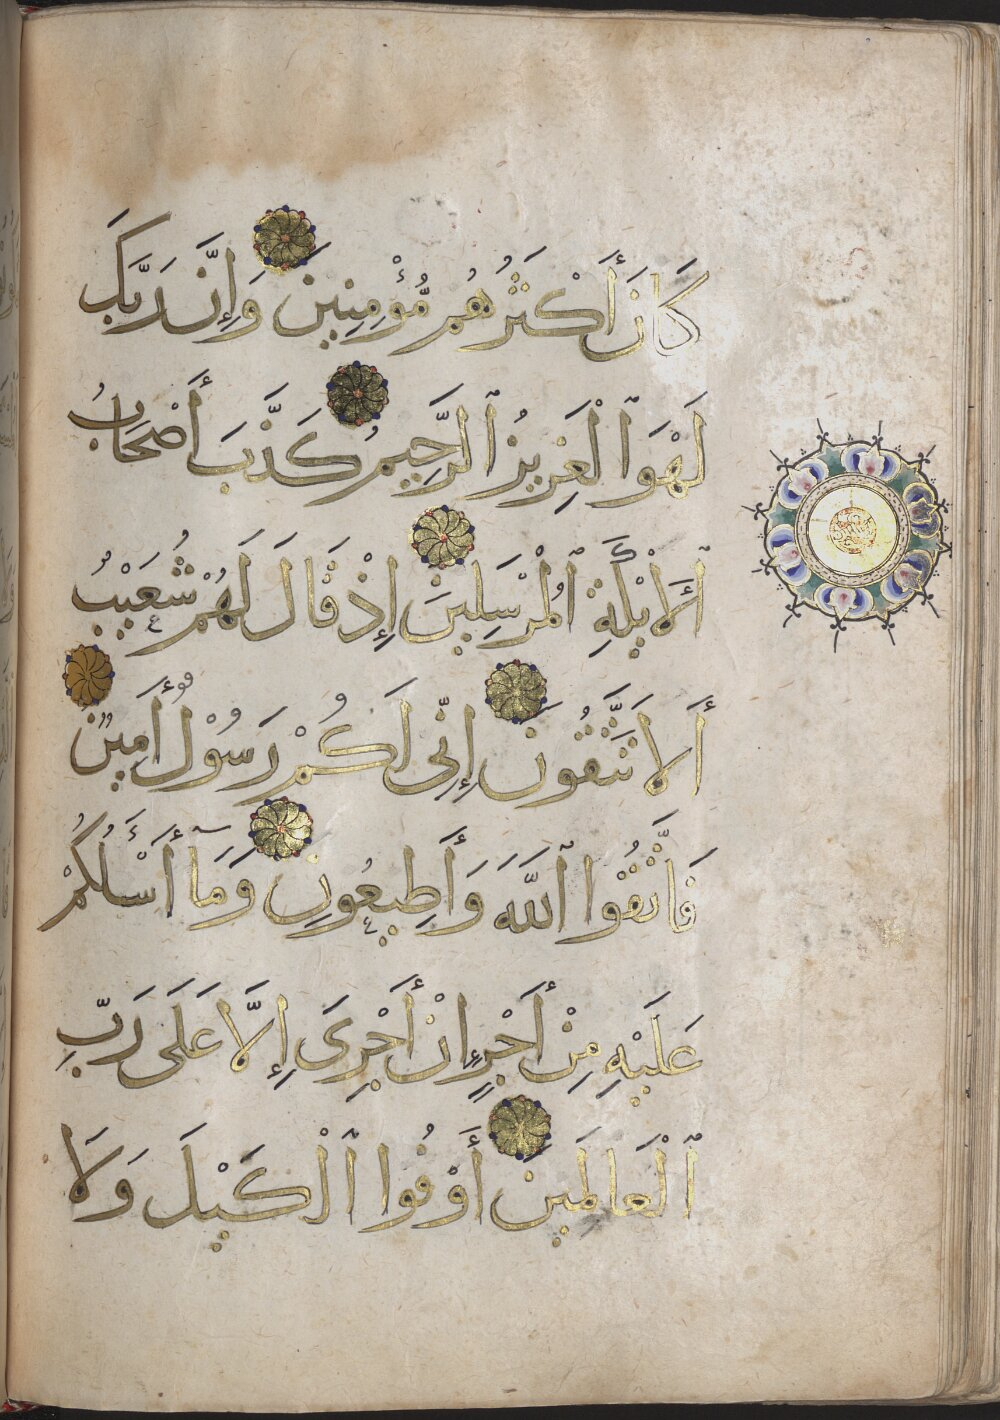 كَانَ أَكْثَرُهُم مُّؤْمِنِينَ وَإِنَّ رَبَّكَ
لَهْوَ ٱلْعَزِيزُ ٱلرَّحِيمُ كَذَّبَ أَصْحَابُ
ٱلأَيْكَةِ ٱلْمُرْسَلِينَ إِذْ قَالَ لَهُمْ شُعَيْبٌ
أَلاَ تَتَّقُونَ إِنِّى لَكُمْ رَسُوْلٌ أَمِينٌ
فَاتَّقُوا ٱللَّهَ وَأَطِيعُونِ وَمَآ أَسْأَلُكُمْ
عَلَيْهِ مِنْ أَجْرٍ إِنْ أَجْرِىَ إِلَّا عَلَى رَبِّ
ٱلْعَالَمِينَ أَوْفُوا ٱلْكَيْلَ وَلَا